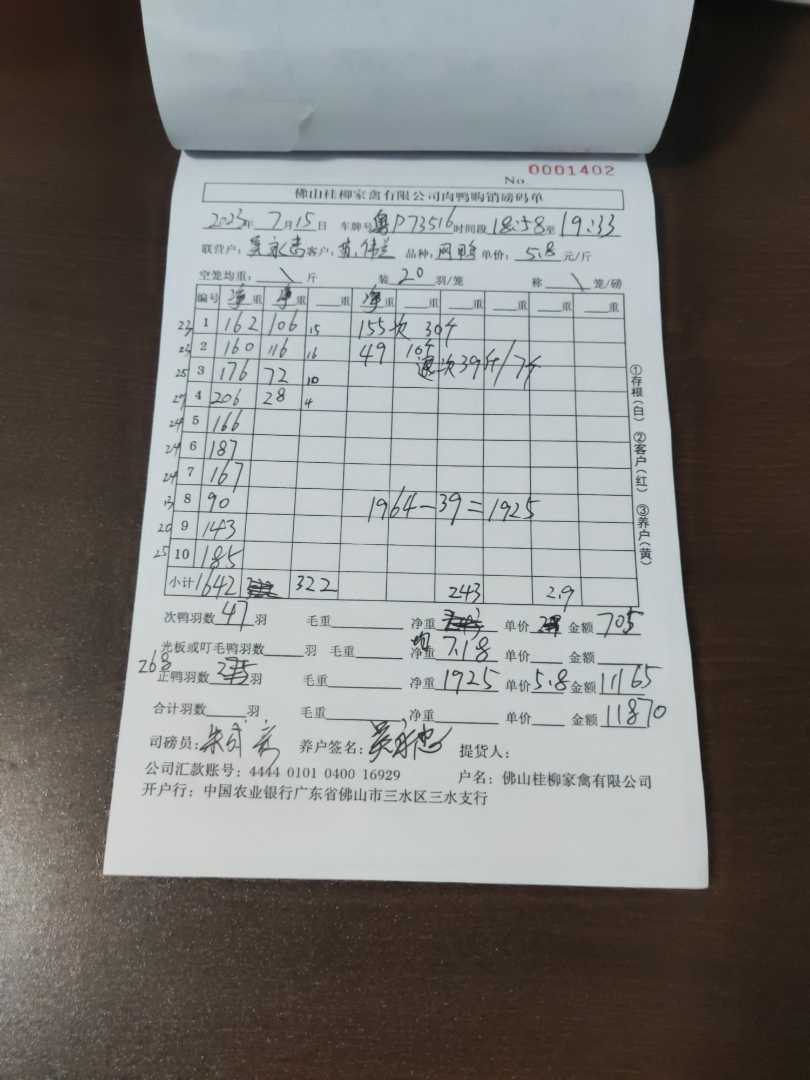 No 0001402
佛山桂柳家禽有限公司肉鸭购销磅码单
2023年 7月15日 车牌号 粤P73516 时间段 18:58至 19:33
联营户: 客户: 品种: 单价: 5.8 元/斤
空笼均重: \ 斤 装 20 羽/笼 称 \ 笼/磅
编号 净重 净重 重 净重 重 重 重 重 重
23 1 162 106 15 155 次 30个
23 2 160 116 16 49 10个
25 3 176 72 10 退次39斤/7个
27 4 206 28 4
24 5 166
24 6 187
24 7 167
13 8 90 1964-39=1925
20 9 143
25 10 185
小计 1642 322 243 2.9
次鸭羽数 47 羽 毛重 净重 单价 金额 705
光板或叮毛鸭羽数 羽 毛重 均 净重 7.18 单价 金额
268 正鸭羽数 羽 毛重 净重 1925 单价 5.8 金额 11165
合计羽数 羽 毛重 净重 单价 金额 11870
司磅员: 养户签名: 提货人:
公司汇款账号: 4444 0101 0400 16929 户名: 佛山桂柳家禽有限公司
开户行: 中国农业银行广东省佛山市三水区三水支行
①存根(白) ②客户(红) ③养户(黄)